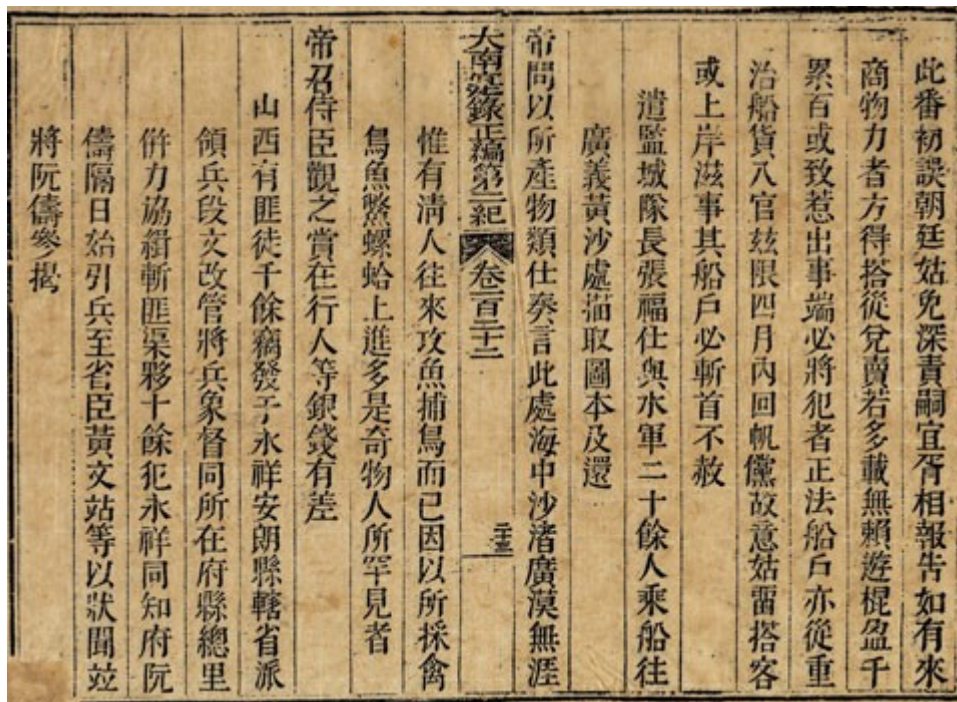 此番初誤朝廷姑免深責嗣宜胥相報告如有來
商物力者方得搭從兌賣若多載無賴遊棍盈千
累百或致惹出事端必將犯者正法船戶亦從重
治船貨入官茲限四月內回帆儻故意姑留搭客
或上岸滋事其船戶必斬首不赦
遣監城隊長張福仕與水軍二十餘人乘船往
廣義黃沙處描取圖本及還
帝問以所產物類仕奏言此處海中沙渚廣漠無涯
大南寔錄正編第二紀 卷一百二十二 二十三
惟有清人往來攻魚捕鳥而已因以所採禽
鳥魚鱉螺蛤上進多是奇物人所罕見者
帝召侍臣觀之賞在行人等銀錢有差
山西有匪徒千餘竊發于永祥安朗縣轄省派
領兵段文改管將兵象督同所在府縣總里
併力協緝斬匪渠夥十餘犯永祥同知府阮
儔隔日始引兵至省臣黃文站等以狀聞並
將阮儔參揭